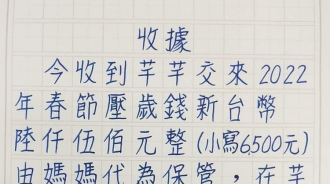 收據
今收到芊芊交來2022
年春節壓歲錢新台幣
陸仟伍佰元整(小寫6,500元)
由媽媽代為保管,在芊